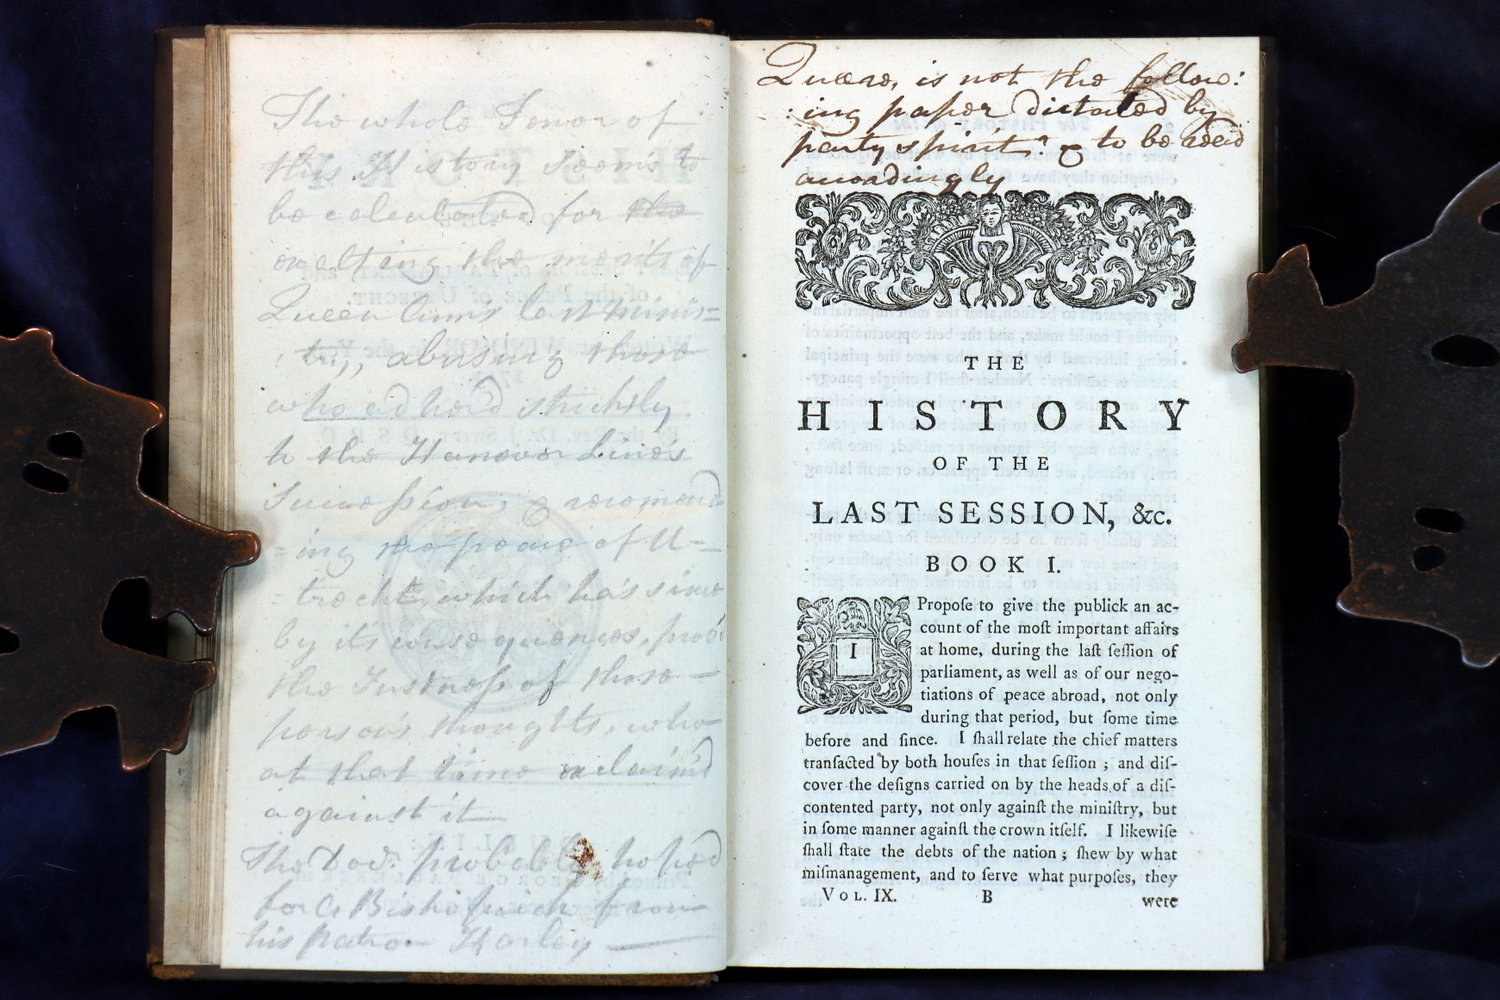 The whole Tenor of
this History seems to
be calculated for the
exalting the merits of
Queen Anns last minis=
try, abusing those
who adhered strictly
to the Hanover Line's
Succession, & recomend
=ing the peace of U=
=trecht, which has since
by its consequences, prov'd
the Justness of those
person's thoughts, who
at that time exclaim'd
against it
The Doc.r probably hoped
for a Bishoprick from
his patron Harley
Quære, is not the follow:
:ing paper dictated by
party spirit? & to be read
accordingly
THE
HISTORY
OF THE
LAST SESSION, &c.
BOOK I.
I Propoſe to give the publick an ac-
count of the moſt important affairs
at home, during the laſt ſeſſion of
parliament, as well as of our nego-
tiations of peace abroad, not only
during that period, but ſome time
before and ſince. I ſhall relate the chief matters
tranſacted by both houſes in that ſeſſion ; and diſ-
cover the deſigns carried on by the heads of a diſ-
contented party, not only againſt the miniſtry, but
in ſome manner againſt the crown itſelf. I likewiſe
ſhall ſtate the debts of the nation ; ſhew by what
miſmanagement, and to ſerve what purpoſes, they
VOL. IX. B were